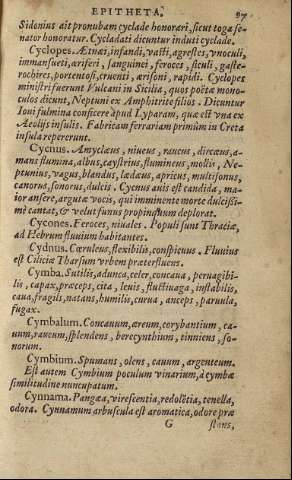 EPITHETA. 97
Sidonius ait pronubam cyclade honorari, sicut toga se-
nator honoratur. Cycladati dicuntur induti cyclade.
Cyclopes. Ætnæi, infandi, vasti, agrestes, vnoculi,
immansueti, ariferi, sanguinei, feroces, siculi, gaste-
rochires, portentosi, cruenti, arisoni, rapidi. Cyclopes
ministri fuerunt Vulcani in Sicilia, quos poëtæ mono-
culos dicunt, Neptuni ex Amphitrite filios. Dicuntur
Ioui fulmina conficere apud Lyparam, quæ est vna ex
Aeolijs insulis. Fabricam ferrariam primùm in Creta
insula repererunt.
Cycnus. Amyclæus, niueus, raucus, dircæus, a-
mans flumina, albus, caystrius, flumineus, mollis, Ne-
ptunius, vagus, blandus, ledæus, apricus, multisonus,
canorus, sonorus, dulcis. Cycnus auis est candida, ma-
ior ansere, argutæ vocis, qui imminente morte dulcissi-
mè cantat, & velut funus propinquum deplorat.
Cycones. Feroces, niuales. Populi sunt Thraciæ,
ad Hebrum fluuium habitantes.
Cydnus. Cœruleus, flexibilis, conspicuus. Fluuius
est Ciliciæ Tharsum vrbem præterfluens.
Cymba. Sutilis, adunca, celer, concaua, peruagibi-
lis, capax, præceps, cita, leuis, fluctiuaga, instabilis,
caua, fragilis, natans, humilis, curua, anceps, paruula,
fugax.
Cymbalum. Concauum, æreum, corybantium, ca-
uum, raucum, splendens, berecynthium, tinniens, so-
norum.
Cymbium. Spumans, olens, cauum, argenteum.
Est autem Cymbium poculum vinarium, à cymbæ
similitudine nuncupatum.
Cynnama. Pangæa, virescentia, redolētia, tenella,
odora. Cynnamum arbuscula est aromatica, odore præ
G stans,